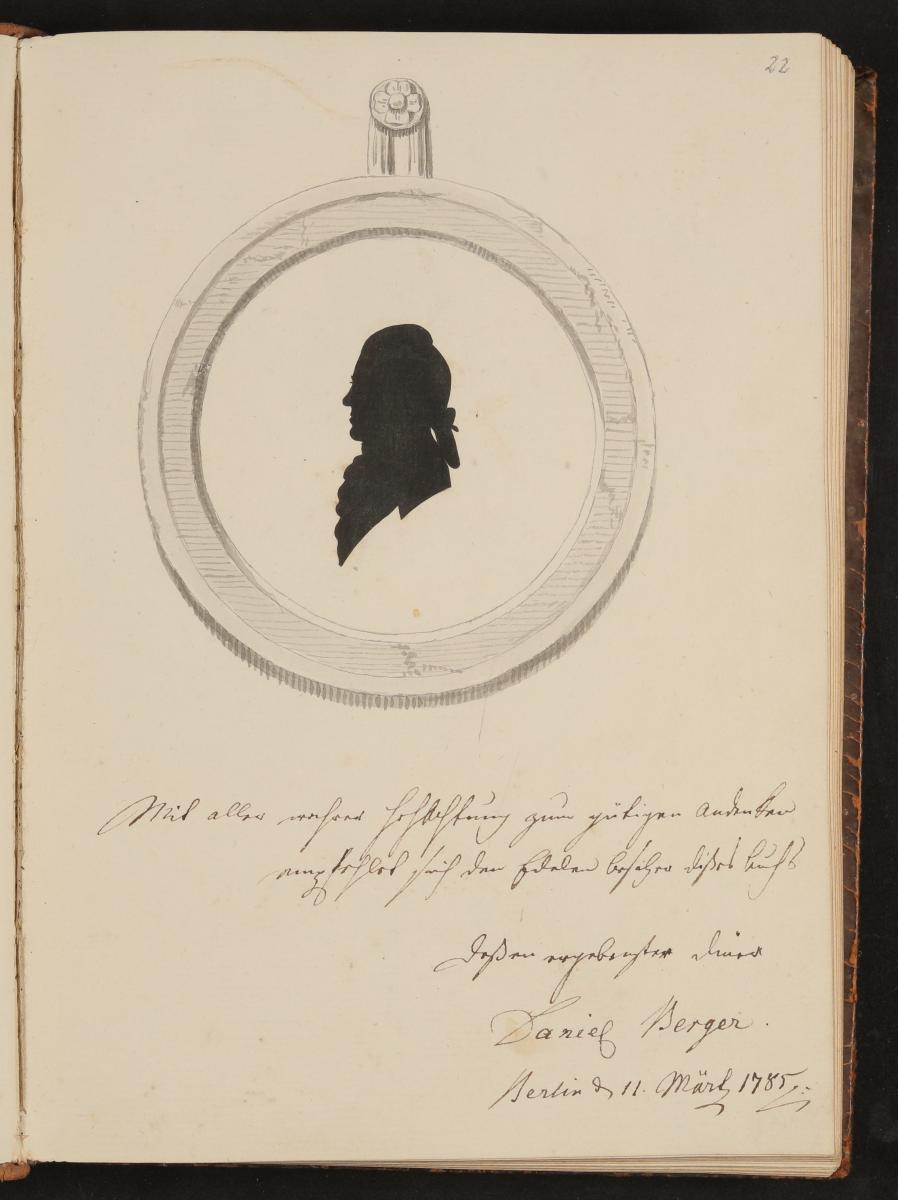 22
Mit aller wahrer Hochachtung zum gütigen Andenken
empfehlet sich den Edelen besitzer dißes buchs
deßen ergebenster diener
Daniel Berger.
Berlin d 11. Märtz 1785.